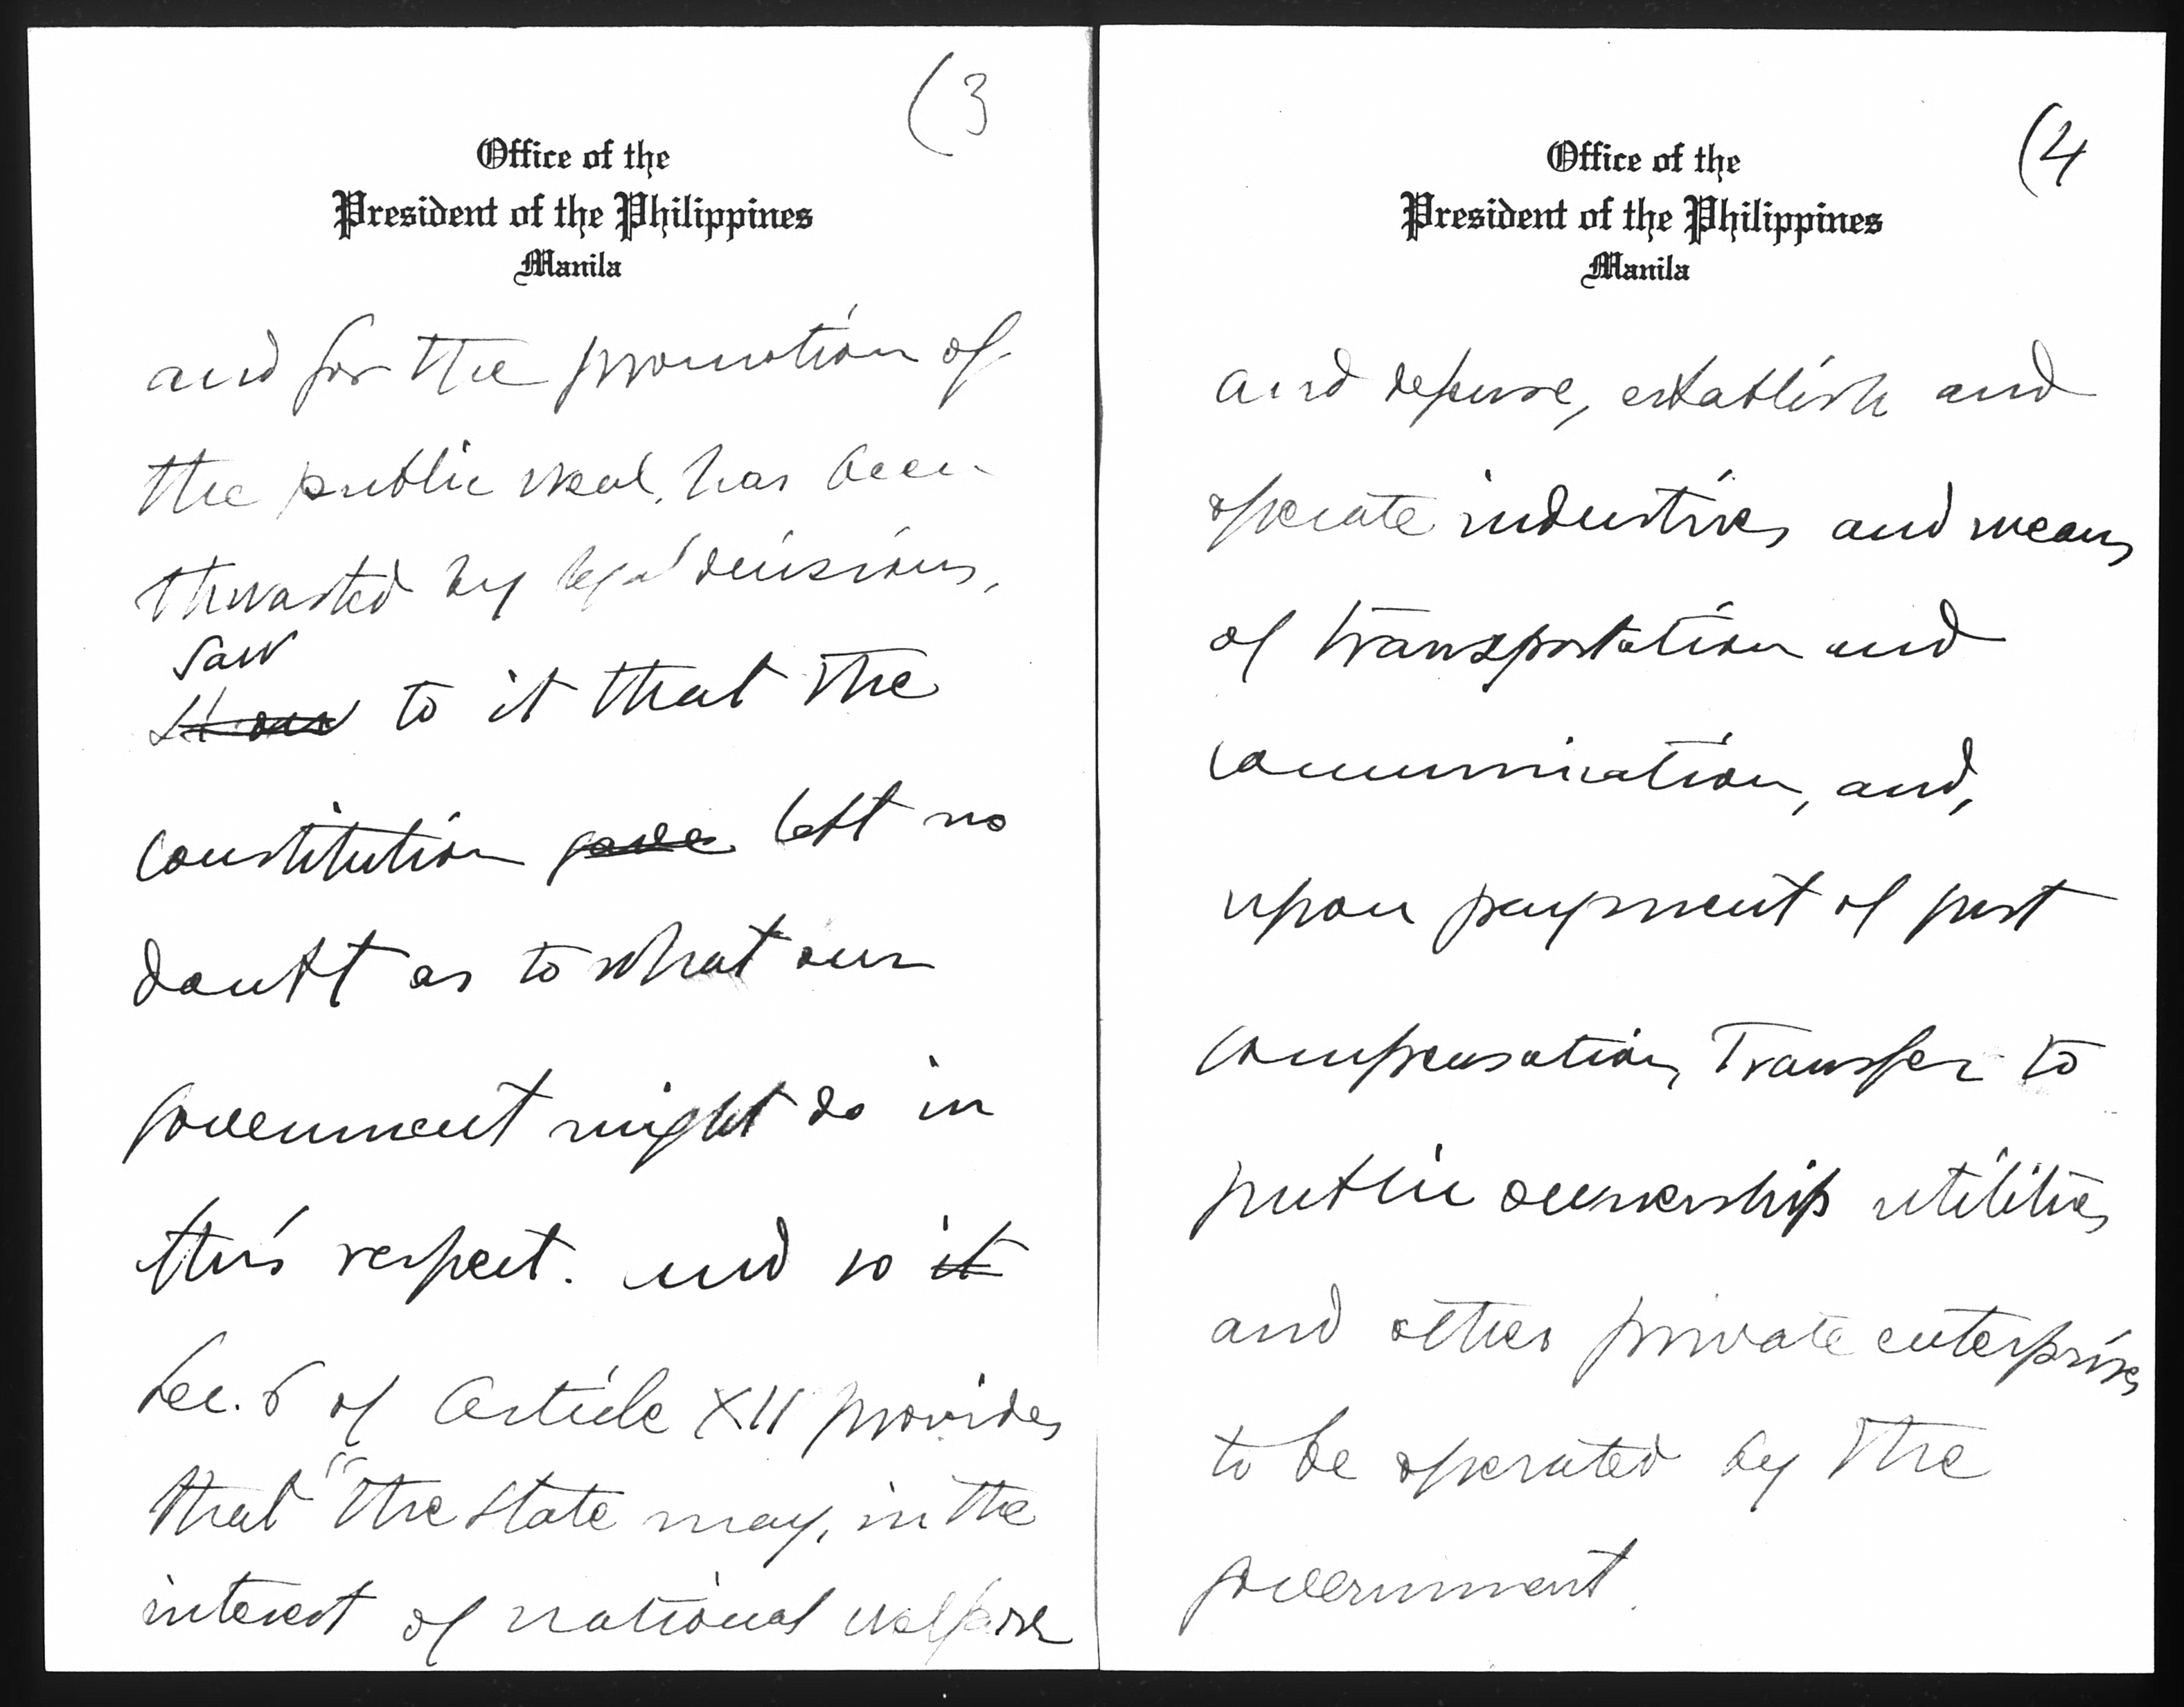 (3
Office of the
President of the Philippines
Manila
and for the promotion of
the public weal, has been
thwarted by legal decisions,
saw
to it that the
constitution gave left no
doubt as to what our
government might do in
this respect. and so it
Sec. 6 of Article XII provides
that "the State may, in the
interest of national welfare
(4
Office of the
President of the Philippines
Manila
and defense, establish and
operate industries and means
of transportation and
communication, and,
upon payment of just
compensation, transfer to
public ownership utilities
and other private enterprises
to be operated by the
government.